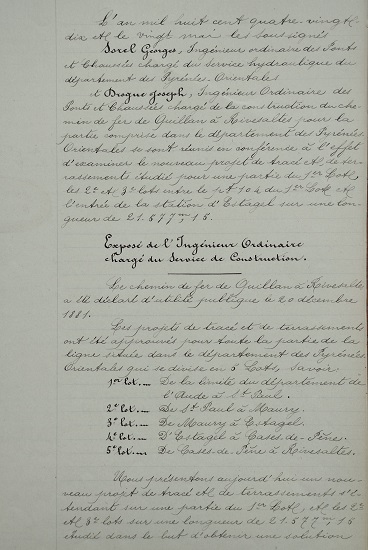 L'an mil huit cent quatre-vingt
dix et le vingt mai les soussignés
Sorel Georges, Ingénieur ordinaire des Ponts
et Chaussées chargé du Service hydraulique du
département des Pyrénées-Orientales
et Brogue Joseph, Ingénieur Ordinaire des
Ponts et Chaussées chargé de la construction du che-
min de fer de Quillan à Rivesaltes pour la
partie comprise dans le département des Pyrénées
Orientales se sont réunis en conférence à l'effet
d'examiner le nouveau projet de tracé et de ter-
rassements étudié pour une partie du 1er Lot,
les 2e et 3e lots entre le pt 104 du 1er Lot et
l'entrée de la station d'Estagel sur une lon-
gueur de 21.577m,15.
Exposé de l'Ingénieur Ordinaire
chargé du Service de Construction.
Le chemin de fer de Quillan à Rivesaltes
a été déclaré d'utilité publique le 20 décembre
1881.
Les projets de tracé et de terrassements
ont été approuvés pour toute la partie de la
ligne située dans le département des Pyrénées
Orientales qui se divise en 5 Lots, savoir
1er lot.— De la limite du département de
l'Aude à St Paul.
2e lot.— De St Paul à Maury.
3e lot.— De Maury à Estagel.
4e lot.— D'Estagel à Cases-de-Pène.
5e lot.— De Cases-de-Pène à Rivesaltes.
Nous présentons aujourd'hui un nou-
veau projet de tracé et de terrassements s'é-
tendant sur une partie du 1er Lot, et les 2e
et 3e lots sur une longueur de 21.577m,15
étudié dans le but d'obtenir une solution